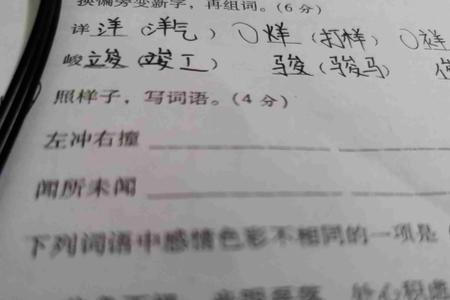 换偏旁变新字，再组词。（6分）
详 洋（洋气） 烊（打烊） 祥
峻 竣（竣工） 骏（骏马）
照样子，写词语。（4分）
左冲右撞
闻所未闻
下列词语中感情色彩不相同的一项是（